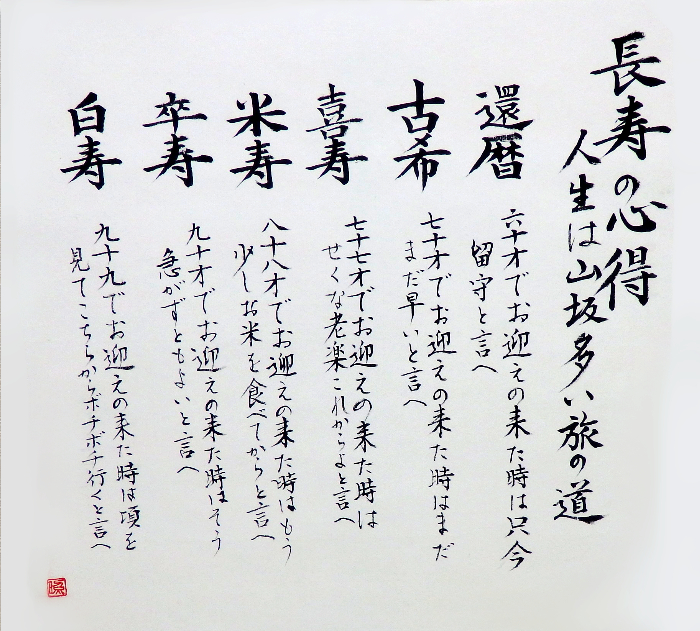 長寿の心得
人生は山坂多い旅の道
還暦
六十才でお迎えの来た時は只今
留守と言へ
古希
七十才でお迎えの来た時はまだ
まだ早いと言へ
喜寿
七十七才でお迎えの来た時は
せくな老楽これからよと言へ
米寿
八十八才でお迎えの来た時はもう
少しお米を食べてからと言へ
卒寿
九十才でお迎えの来た時はそう
急がずともよいと言へ
白寿
九十九でお迎えの来た時は頃を
見てこちらからボチボチ行くと言へ